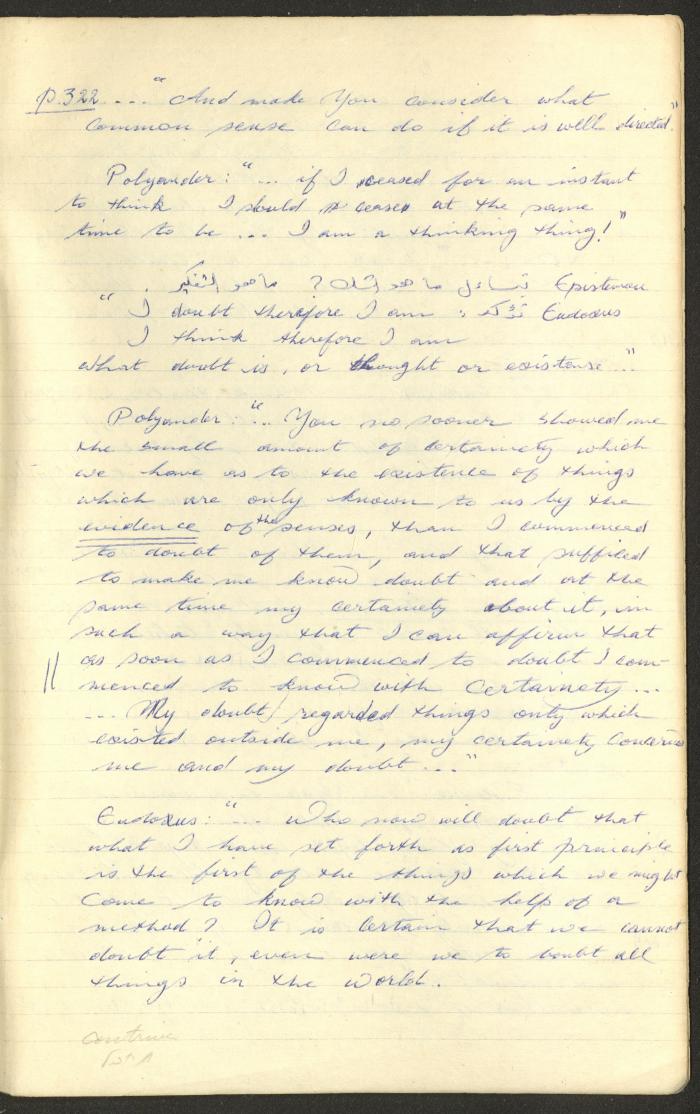 p.322 ... "And make You consider what
Common sense can do if it is well directed."
Polyander: "... if I ceased for an instant
to think I should cease at the same
time to be ... I am a thinking thing!"
Epistemon تساءل ما هو الشك؟ ما هو التفكير .
" I doubt therefore I am : Eudoxus
I think therefore I am
what doubt is, or thought or existense..."
Polyander: "... You no sooner showed me
the small amount of certainety which
we have as to the existence of things
which are only known to us by the
evidence of the senses, than I commenced
to doubt of them, and that sufficed
to make me know doubt and at the
same time my certainety about it, in
such a way that I can affirm that
as soon as I commenced to doubt I com-
menced to know with Certainety...
... My doubt regarded things only which
existed outside me, my certainety Concerns
me and my doubt ..."
Eudoxus: "... Who now will doubt that
what I have set forth as first principle
is the first of the things which we might
Come to know with the help of a
method? It is Certain that we cannot
doubt it, even were we to doubt all
things in the World.